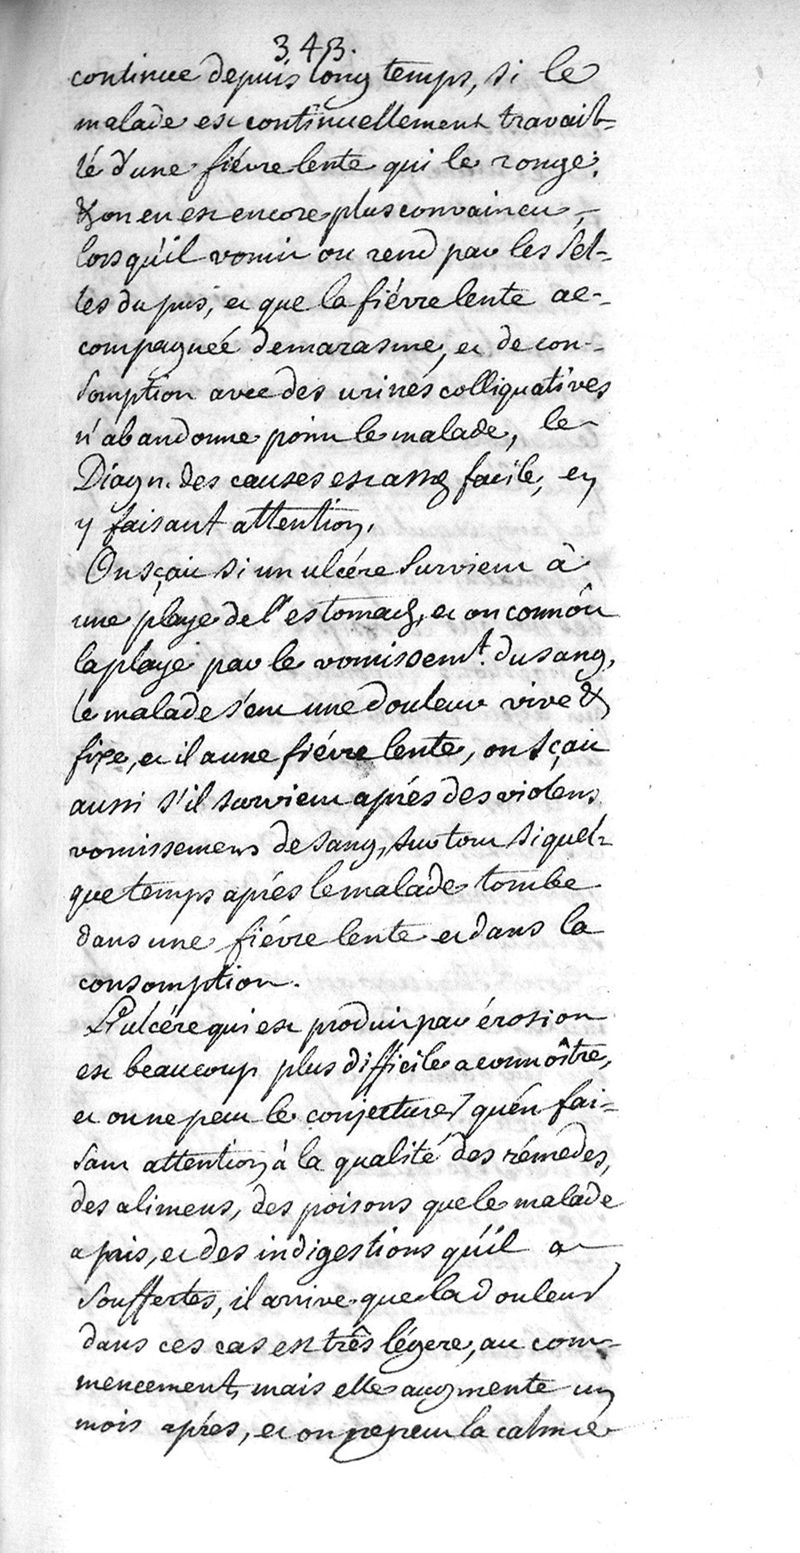 343.
continue depuis long temps, si le
malade est continuellement travail-
lé d'une fiévre lente qui le ronge;
& on en est encore plus convaincu,
lorsqu'il vomit ou rend par les sel-
les du pus, et que la fiévre lente ac-
compagneé de marasme, et de con-
somption avec des urines colliquatives
n'abandonne point le malade, le
Diagn. des causes est assez facile, en
y faisant attention.
On sçait si un ulcére survient à
une playe de l'estomach, et on connoît
la playe par le vomissemt. du sang,
le malade sent une douleur vive &
fixe, et il a une fiévre lente, on sçait
aussi s'il survient aprés des violens
vomissemens de sang, sur tout si quel-
que temps aprés le malade tombe
dans une fiévre lente et dans la
consomption.
L'ulcére qui est produit par érosion
est beaucoup plus difficile a connoître,
et on ne peut le conjecturer qu'en fai-
sant attention à la qualité des rémedes,
des alimens, des poisons que le malade
a pris, et des indigestions qu'il a
souffertes, il arrive que la douleur
dans ces cas est três légere, au com-
mencement, mais elle augmente un
mois aprés, et on ne peut la calmer